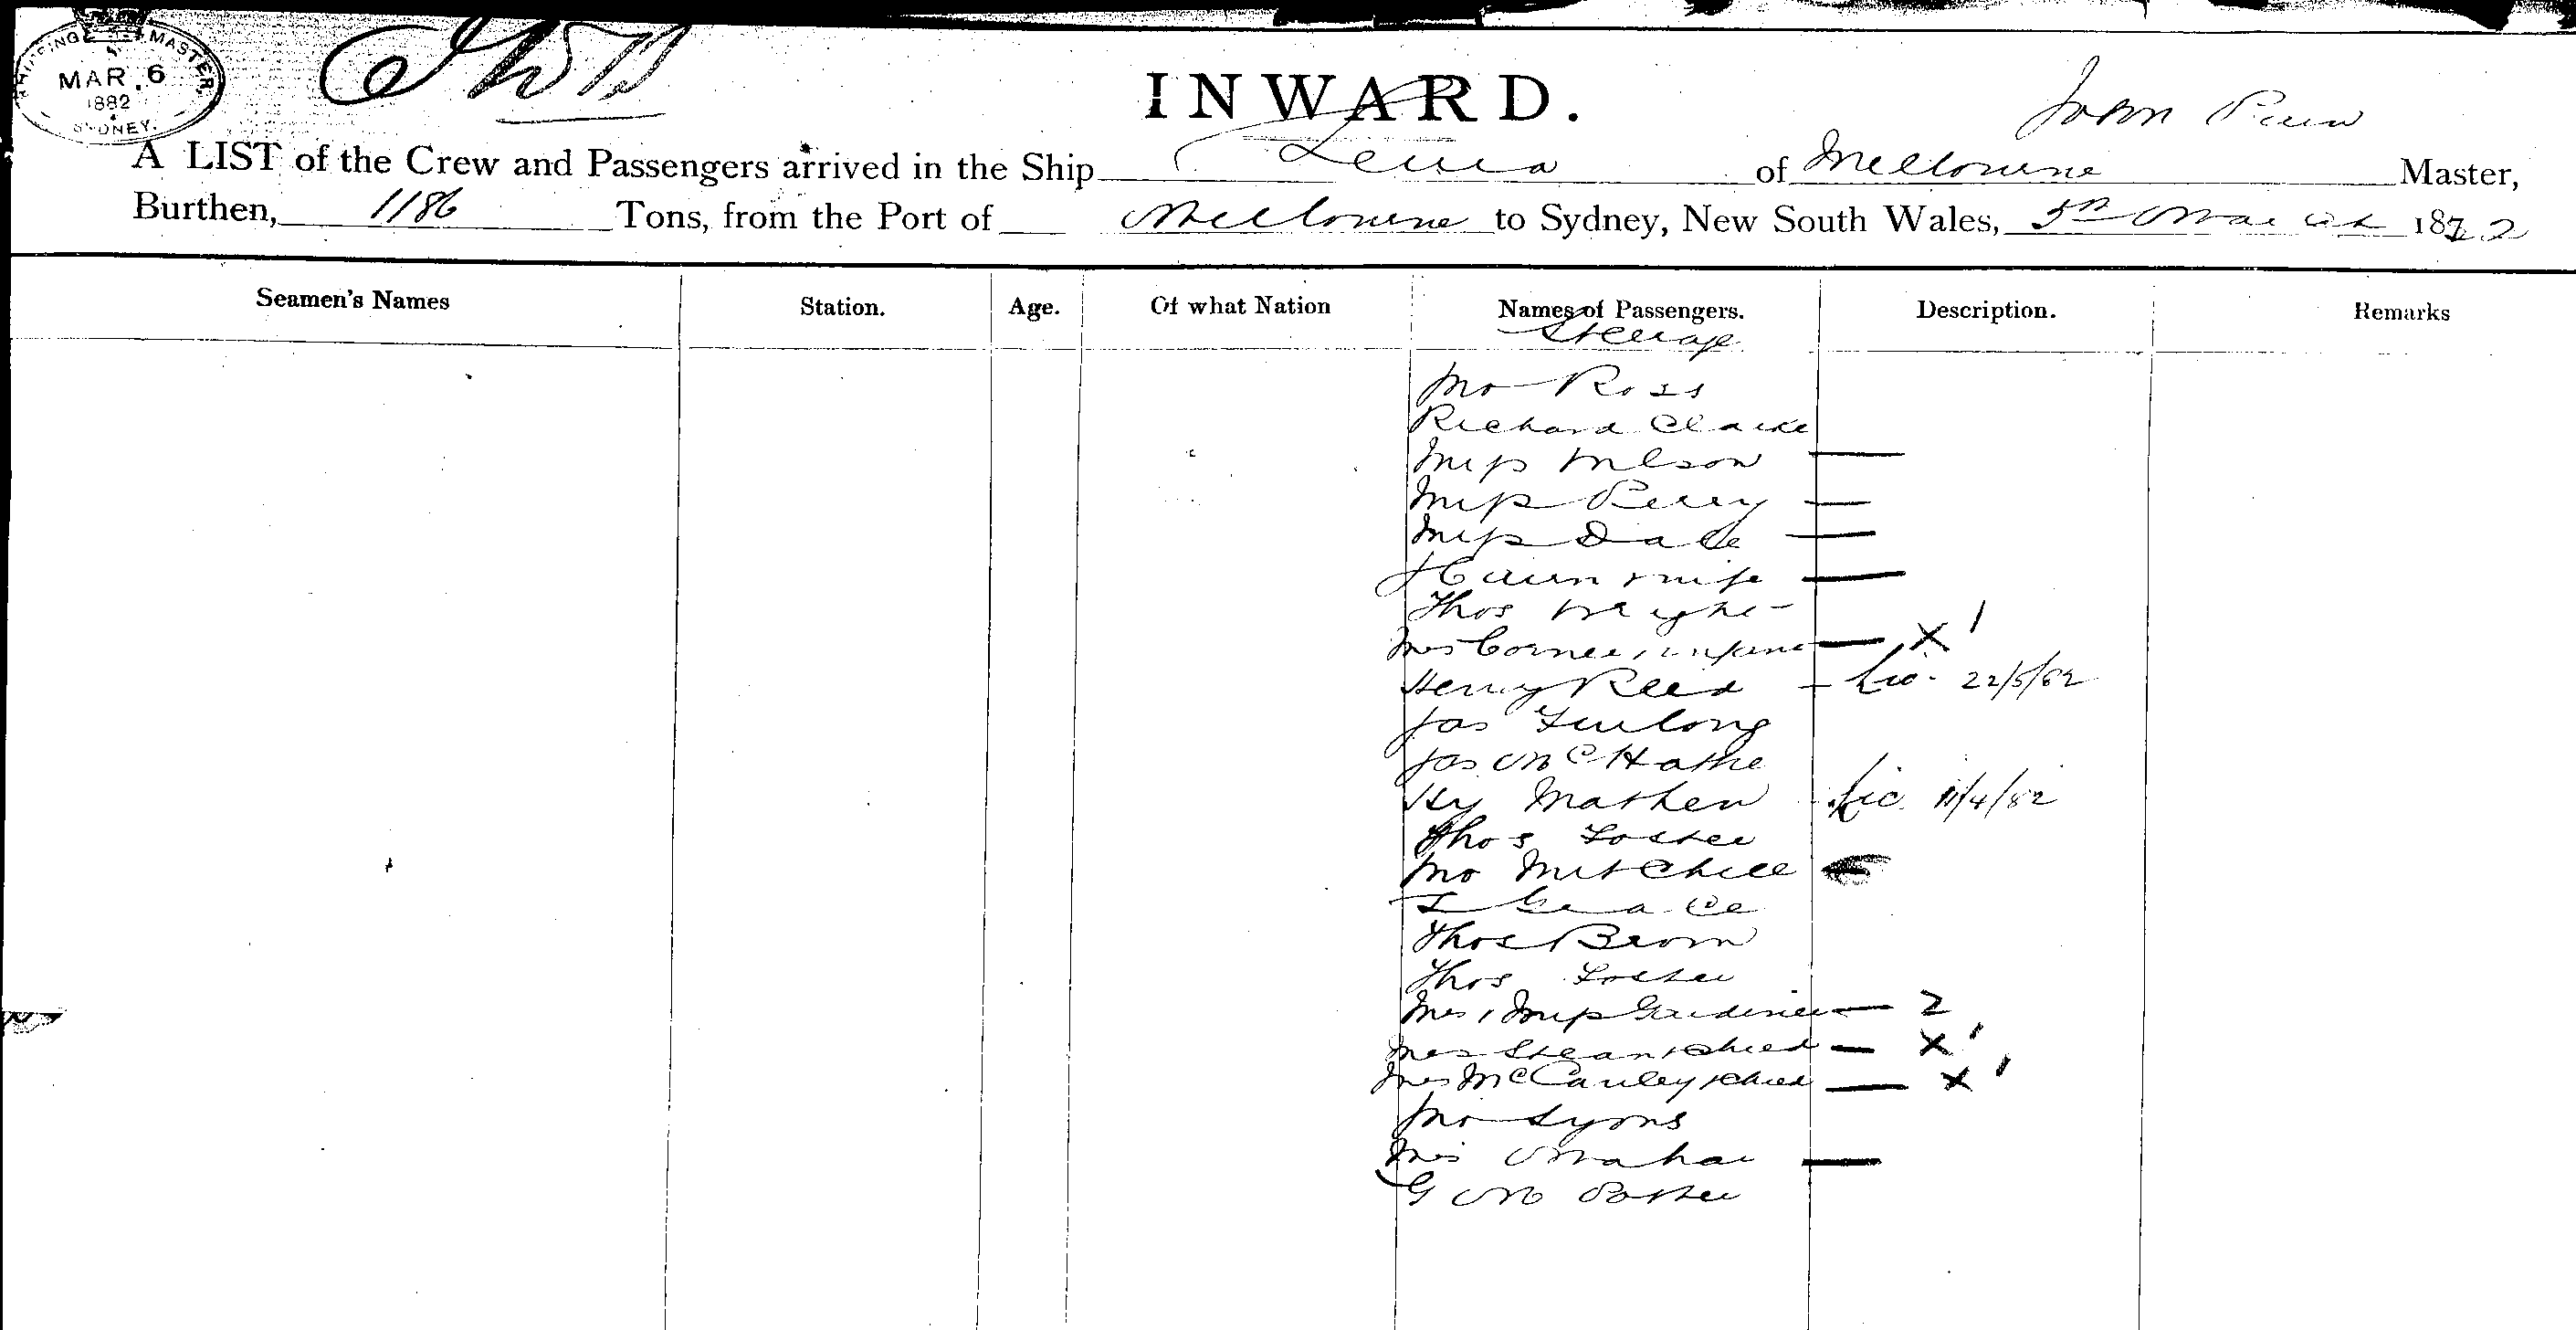 SHIPPING MASTER
MAR 6
1882
SYDNEY.
INWARD.
John
A LIST of the Crew and Passengers arrived in the Ship of Melbourne Master,
Burthen, 1186 Tons, from the Port of Melbourne to Sydney, New South Wales, 5th March 1882
Seamen's Names Station. Age. Of what Nation Names of Passengers. Description. Remarks
Steerage
Mr Ross
Richard Clarke
Miss Wilson
Miss Perry
Miss Dale
& wife
Thos Wright
Mrs Corner, infant X 1
Henry Reed 22/5/82
Jas Furlong
Jas McHathe
Hy Mathew 11/4/82
Thos Foster
Mr Mitchell
Grace
Thos Brown
Thos Foster
Mrs, Miss Gardiner 2
Mrs child X 1
Mrs McCauley, child X 1
Mr Lyons
Mrs
G Potter